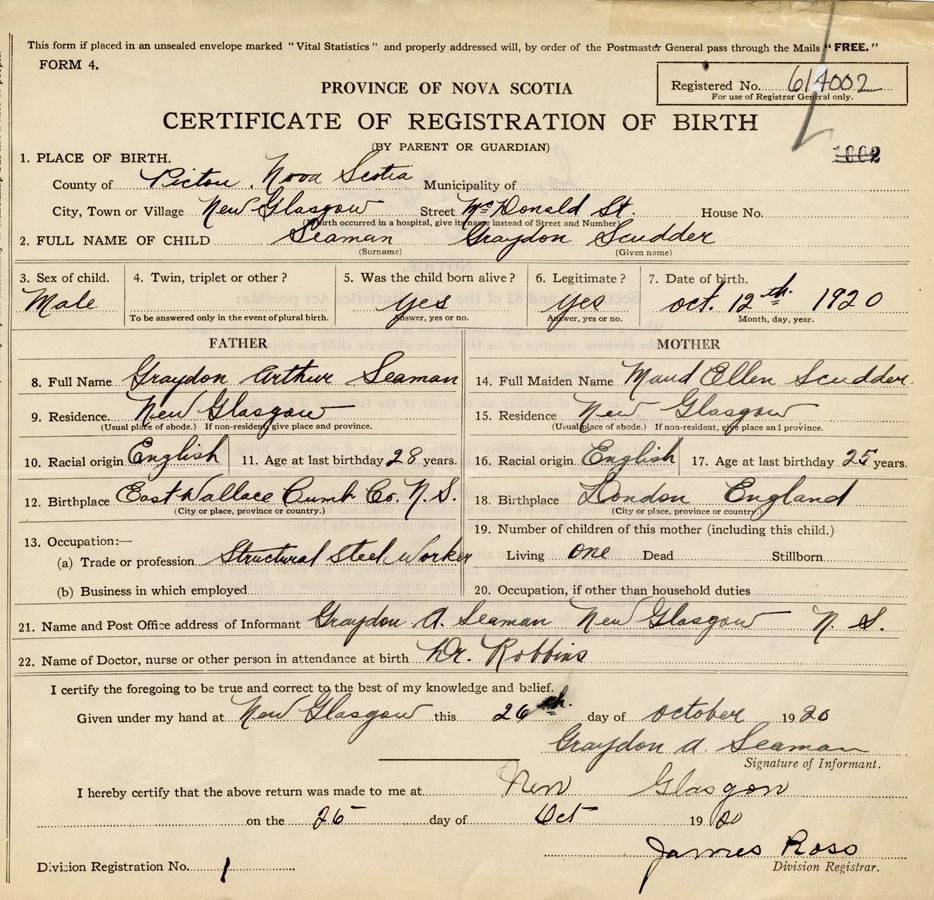 This form if placed in an unsealed envelope marked "Vital Statistics" and properly addressed will, by order of the Postmaster General pass through the Mails "FREE."
FORM 4.
Registered No. 614002
For use of Registrar General only.
PROVINCE OF NOVA SCOTIA
CERTIFICATE OF REGISTRATION OF BIRTH
(BY PARENT OR GUARDIAN)
1002
1. PLACE OF BIRTH.
County of Pictou, Nova Scotia Municipality of
City, Town or Village New Glasgow Street McDonald St. House No.
(If birth occurred in a hospital, give its name instead of Street and Number)
2. FULL NAME OF CHILD Seaman Graydon Scudder
(Surname) (Given name)
3. Sex of child. 4. Twin, triplet or other? 5. Was the child born alive? 6. Legitimate? 7. Date of birth.
Male Yes Yes Oct. 12th 1920
To be answered only in the event of plural birth. Answer, yes or no. Answer, yes or no. Month, day, year.
FATHER MOTHER
8. Full Name Graydon Arthur Seaman 14. Full Maiden Name Maud Ellen Scudder.
9. Residence. New Glasgow 15. Residence New Glasgow
(Usual place of abode.) If non-resident, give place and province. (Usual place of abode.) If non-resident, give place and province.
10. Racial origin English 11. Age at last birthday 28 years. 16. Racial origin English 17. Age at last birthday 25 years.
12. Birthplace East Wallace Cumb. Co. N.S. 18. Birthplace London England
(City or place, province or country.) (City or place, province or country.)
13. Occupation:— 19. Number of children of this mother (including this child.)
(a) Trade or profession Structural Steel Worker Living one Dead Stillborn
(b) Business in which employed 20. Occupation, if other than household duties
21. Name and Post Office address of Informant Graydon A. Seaman New Glasgow N. S.
22. Name of Doctor, nurse or other person in attendance at birth Dr. Robbins
I certify the foregoing to be true and correct to the best of my knowledge and belief.
Given under my hand at New Glasgow this 26th day of October 1920
Graydon A. Seaman
Signature of Informant.
I hereby certify that the above return was made to me at New Glasgow
on the 26 day of Oct 1920
James Ross
Division Registration No. 1 Division Registrar.